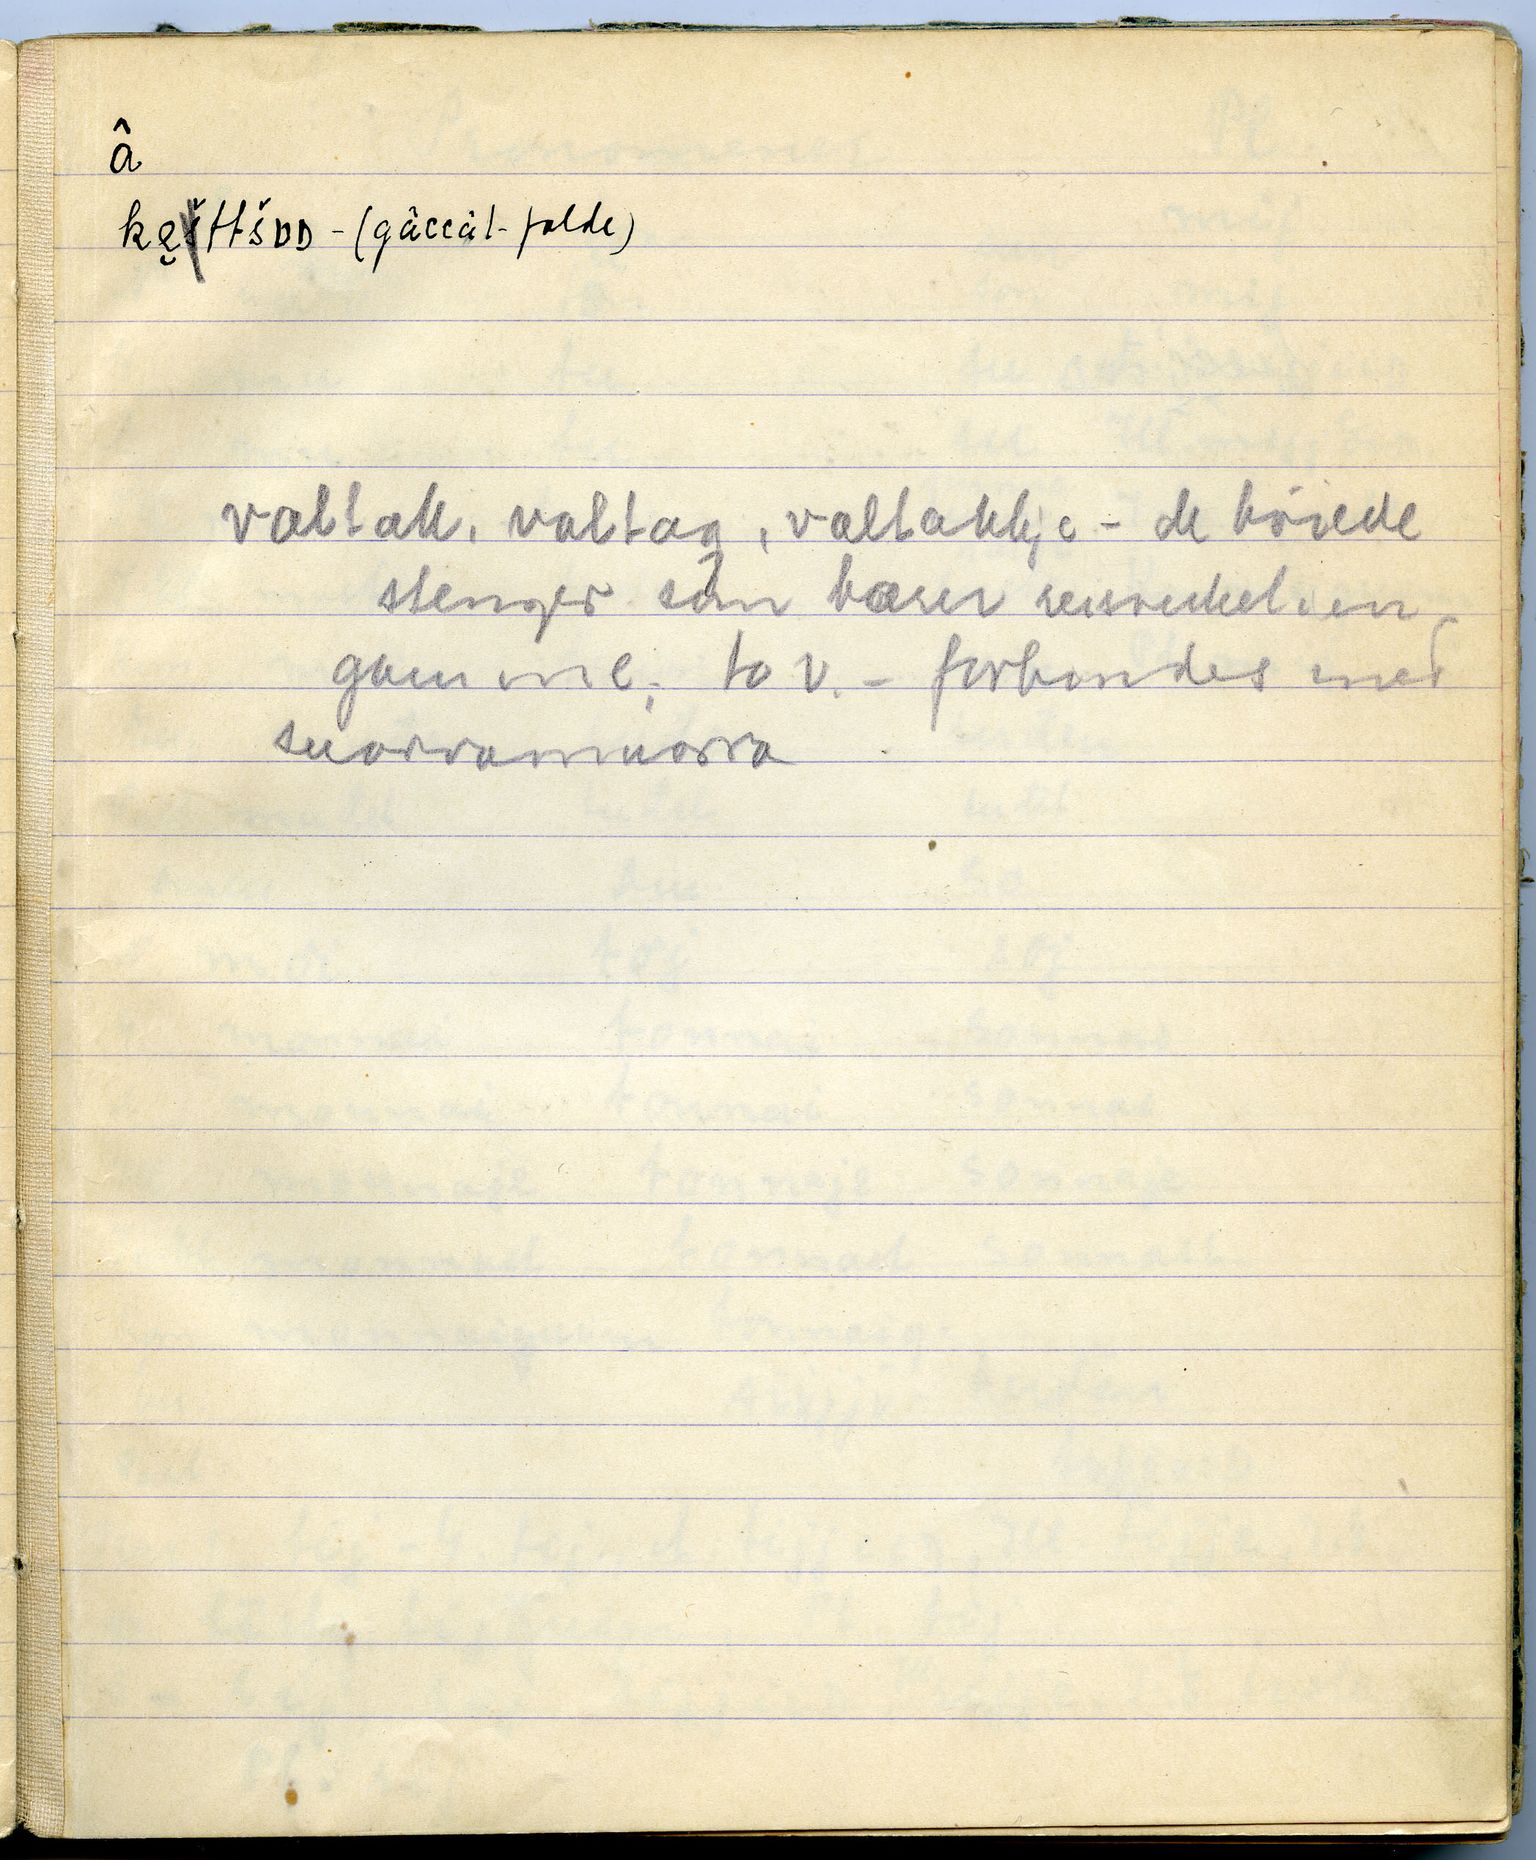 â
kę̆ttšᴅᴅ - (gâccât - falde)
valtak, valtag, valtakkje - de böiede
stenger som bærer reisverket i en
gamme; to v. - forbandes med
suorramuorra